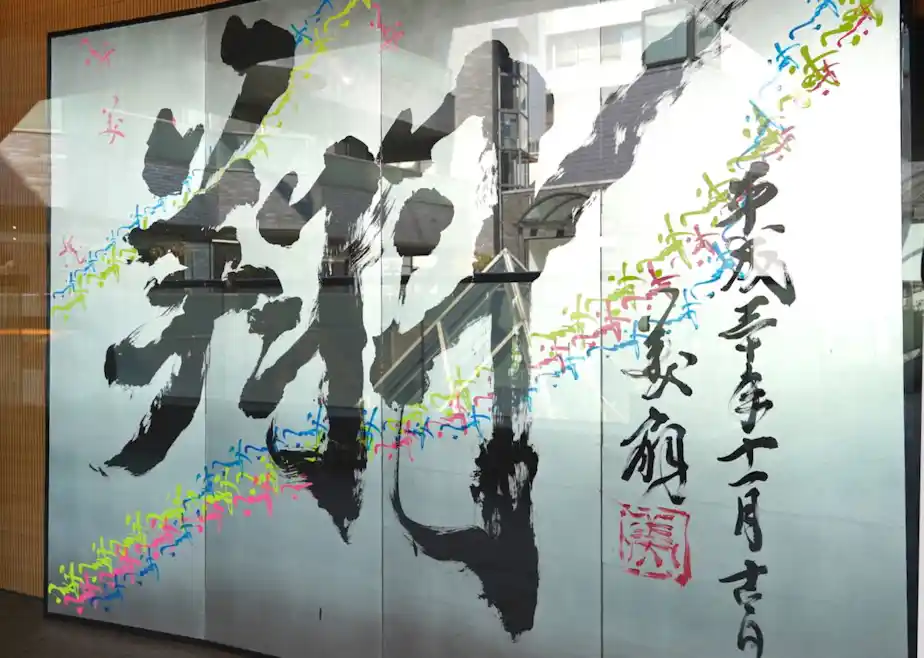 翔
平成三十年十一月吉日
美扇